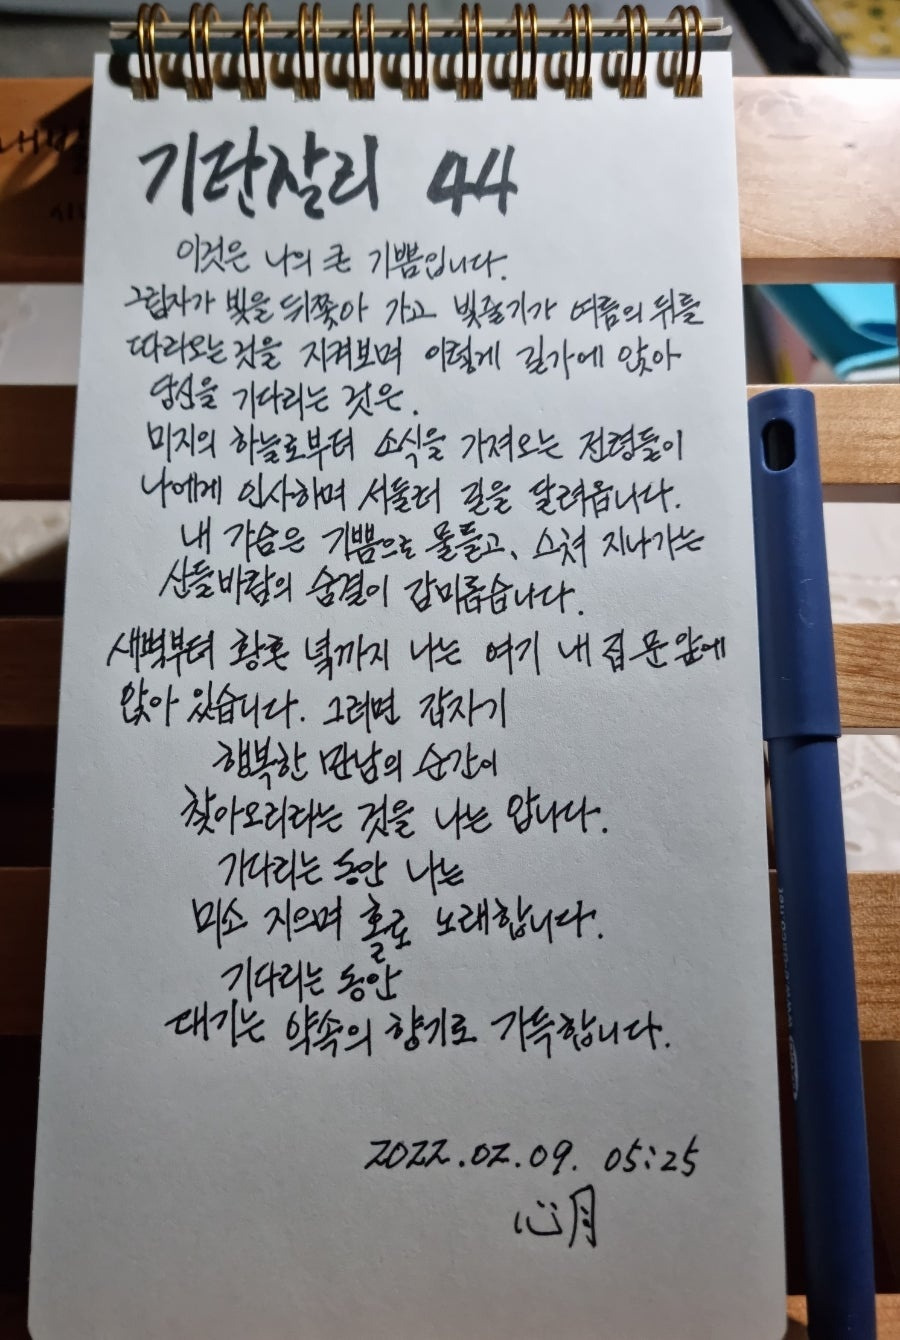 기탄잘리 44
이것은 나의 큰 기쁨입니다.
그림자가 빛을 뒤쫓아 가고 빛줄기가 여름의 뒤를
따라오는 것을 지켜보며 이렇게 길가에 앉아
당신을 기다리는 것은.
미지의 하늘로부터 소식을 가져오는 전령들이
나에게 인사하며 서둘러 길을 달려옵니다.
내 가슴은 기쁨으로 물들고, 스쳐 지나가는
산들바람의 숨결이 감미롭습니다.
새벽부터 황혼 녘까지 나는 여기 내 집 문 앞에
앉아 있습니다. 그러면 갑자기
행복한 만남의 순간이
찾아오리라는 것을 나는 압니다.
기다리는 동안 나는
미소 지으며 홀로 노래합니다.
기다리는 동안
대기는 약속의 향기로 가득합니다.
2022.02.09. 05:25
心月